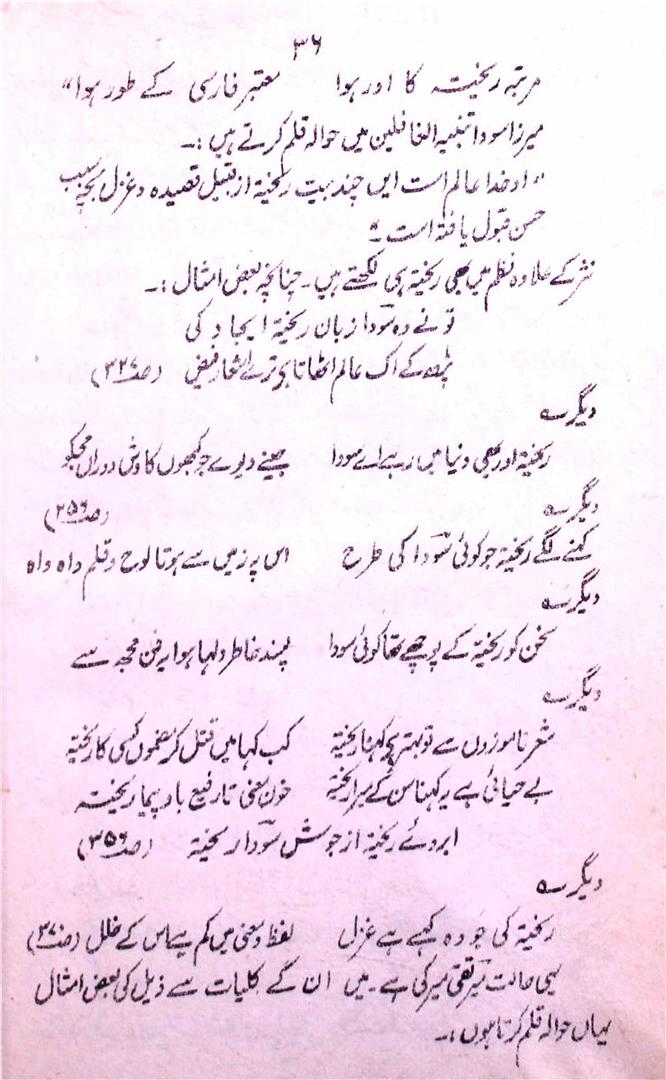 ۳۶
مرتبہ ریختہ کا اور ہوا معتبر فارسی کے طور ہوا"
میرزا سودا تنبیہ الغافلین میں حوالہ قلم کرتے ہیں :۔
خدا عالم است ایں چند بیت ریختہ از قبیل قصیدہ و غزل سبب
حسن قبول یافتہ است"
نثر کے علاوہ نظم میں بھی ریختہ ہی لکھتے ہیں۔ چنانچہ بعض امثال :۔
تو نے وہ سودا زبان ریختہ ایجاد کی
پڑھ کے اک عالم اٹھاتا ہے ترے اشعار فیض (صـ ۳۲۶)
دیگرے
ریختہ اور بھی دنیا میں رہے اے سودا جینے دیوے جو کبھوں کاوش دوراں مجکو
(صـ ۲۵۶)
دیگرے
کہنے لگے ریختہ جو کوئی سودا کی طرح اس پر زمیں سے ہوتا لوح و قلم واہ واہ
دیگرے
سخن کو ریختہ کے پوچھے تھا کوئی سودا پسند خاطر دلہا ہوا یہ فن مجھ سے
دیگرے
شعر ناموزوں سے تو بہتر ہے کہنا ریختہ کب کہا میں قتل کر مضموں کسی کا ریختہ
بے حیائی ہے یہ کہنا سن کے میرا ریختہ خون معنی تا رفیع باد پیما ریختہ
ابروئے ریختہ از جوش سودا ریختہ (صـ ۳۵۶)
دیگرے
ریختہ کی جو وہ کہے ہے غزل لفظ و معنی میں کم ہے اس کے خلل (صـ ۳۷۰)
یہی حالت میر تقی میر کی ہے۔ میں ان کے کلیات سے ذیل کی بعض امثال
یہاں حوالہ قلم کرتا ہوں :۔